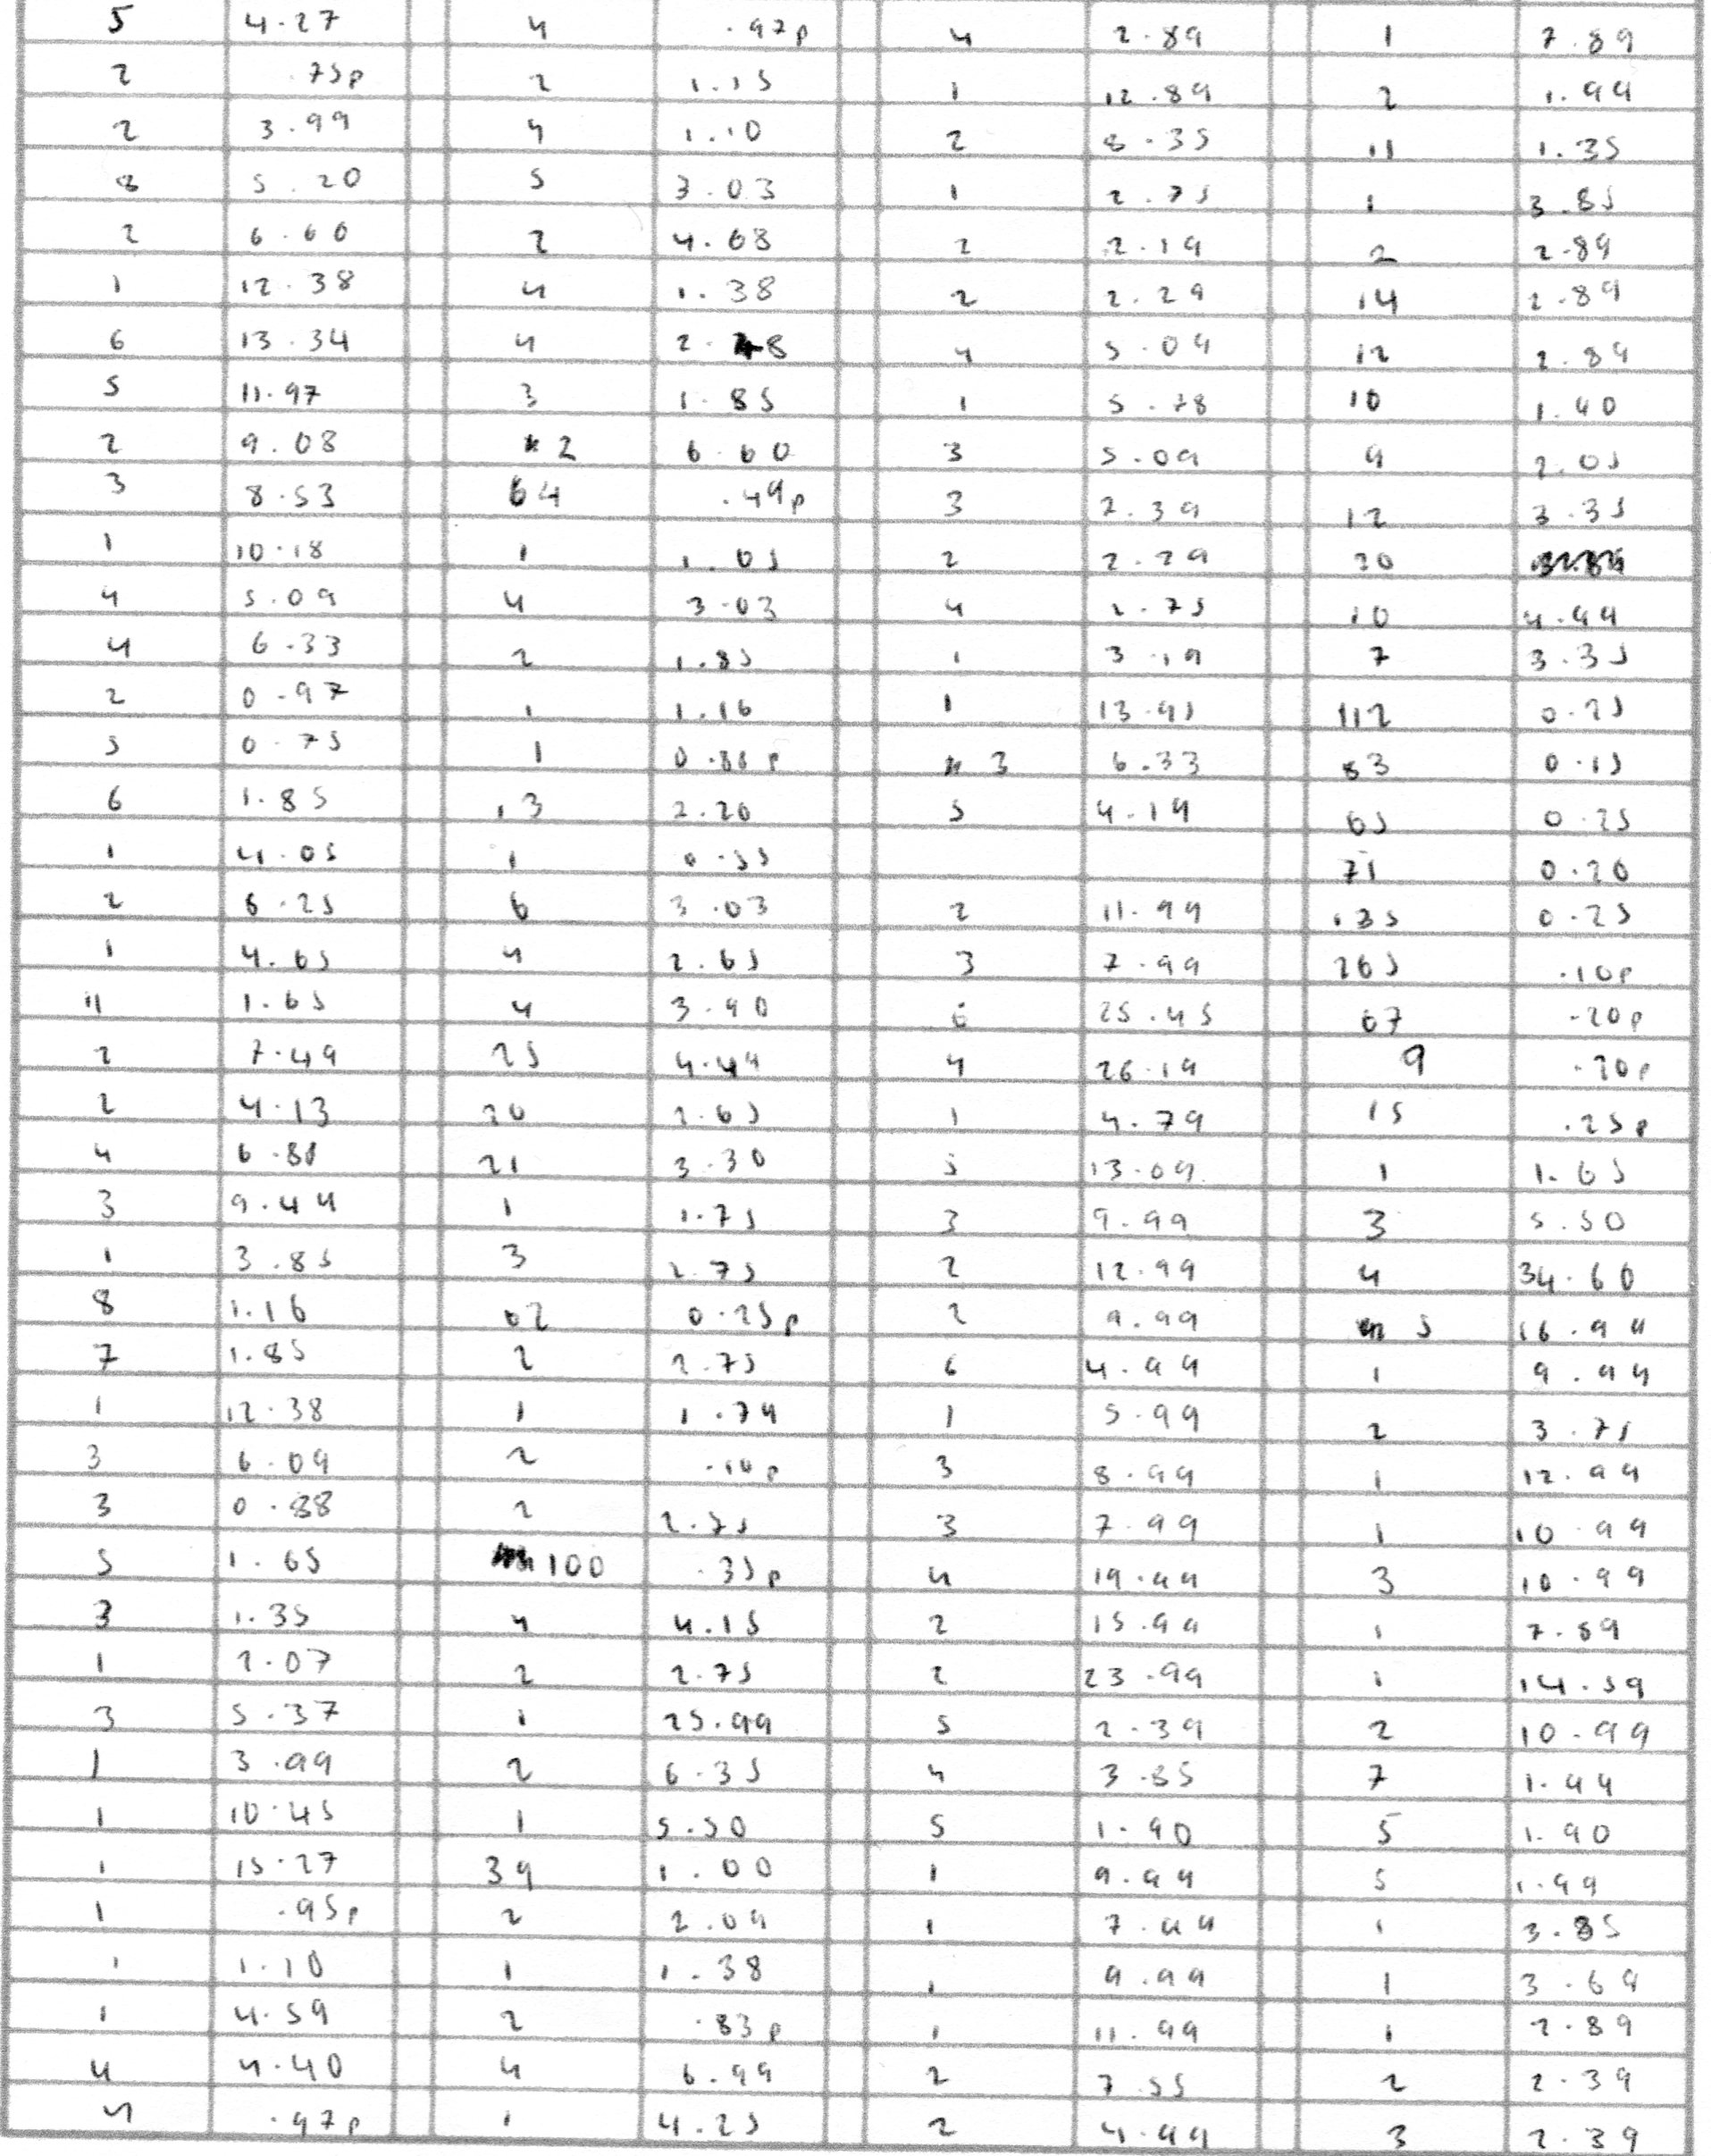 5 4.27 4 .97p 4 2.89 1 7.89
2 .75p 2 1.15 1 12.89 2 1.99
2 3.99 4 1.10 2 8.35 11 1.35
8 5.20 5 3.03 1 2.75 1 3.85
2 6.60 2 4.68 2 2.19 2 2.89
1 12.38 4 1.38 2 2.29 14 2.89
6 13.34 4 2.48 4 5.09 12 2.89
5 11.97 3 1.85 1 5.78 10 1.40
2 9.08 2 6.60 3 5.09 9 2.05
3 8.53 64 .49p 3 2.39 12 3.35
1 10.18 1 1.05 2 2.29 20
4 5.09 4 3.03 4 2.75 10 4.99
4 6.33 2 1.85 1 3.19 7 3.35
2 0.97 1 1.16 1 13.95 112 0.25
5 0.75 1 0.88p 3 6.33 83 0.15
6 1.85 13 2.20 5 4.19 65 0.25
1 4.05 1 0.55 71 0.20
2 6.25 6 3.03 2 11.99 135 0.25
1 4.65 4 2.65 3 7.99 265 .10p
11 1.65 4 3.90 6 25.45 67 .20p
2 7.49 25 4.49 4 26.19 9 .20p
2 4.13 20 2.65 1 4.79 15 .25p
4 6.88 21 3.30 5 13.09 1 1.65
3 9.44 1 1.75 3 9.99 3 5.50
1 3.85 3 2.75 2 12.99 4 34.60
8 1.16 62 0.25p 2 9.99 5 16.99
7 1.85 2 2.75 6 4.99 1 9.99
1 12.38 1 1.79 1 5.99 2 3.75
3 6.09 2 .10p 3 8.99 1 12.99
3 0.88 2 2.75 3 7.99 1 10.99
5 1.65 100 .35p 4 19.49 3 10.99
3 1.35 4 4.15 2 15.99 1 7.89
1 2.07 2 2.75 2 23.99 1 14.59
3 5.37 1 25.99 5 2.39 2 10.99
1 3.99 2 6.35 4 3.85 7 1.49
1 10.45 1 5.50 5 1.90 5 1.90
1 15.27 39 1.00 1 9.99 5 1.99
1 .95p 2 2.09 1 7.49 1 3.85
1 1.10 1 1.38 1 9.99 1 3.69
1 4.59 2 .83p 1 11.99 1 2.89
4 4.40 4 6.99 2 7.55 2 2.39
4 .97p 1 4.25 2 4.99 3 2.39